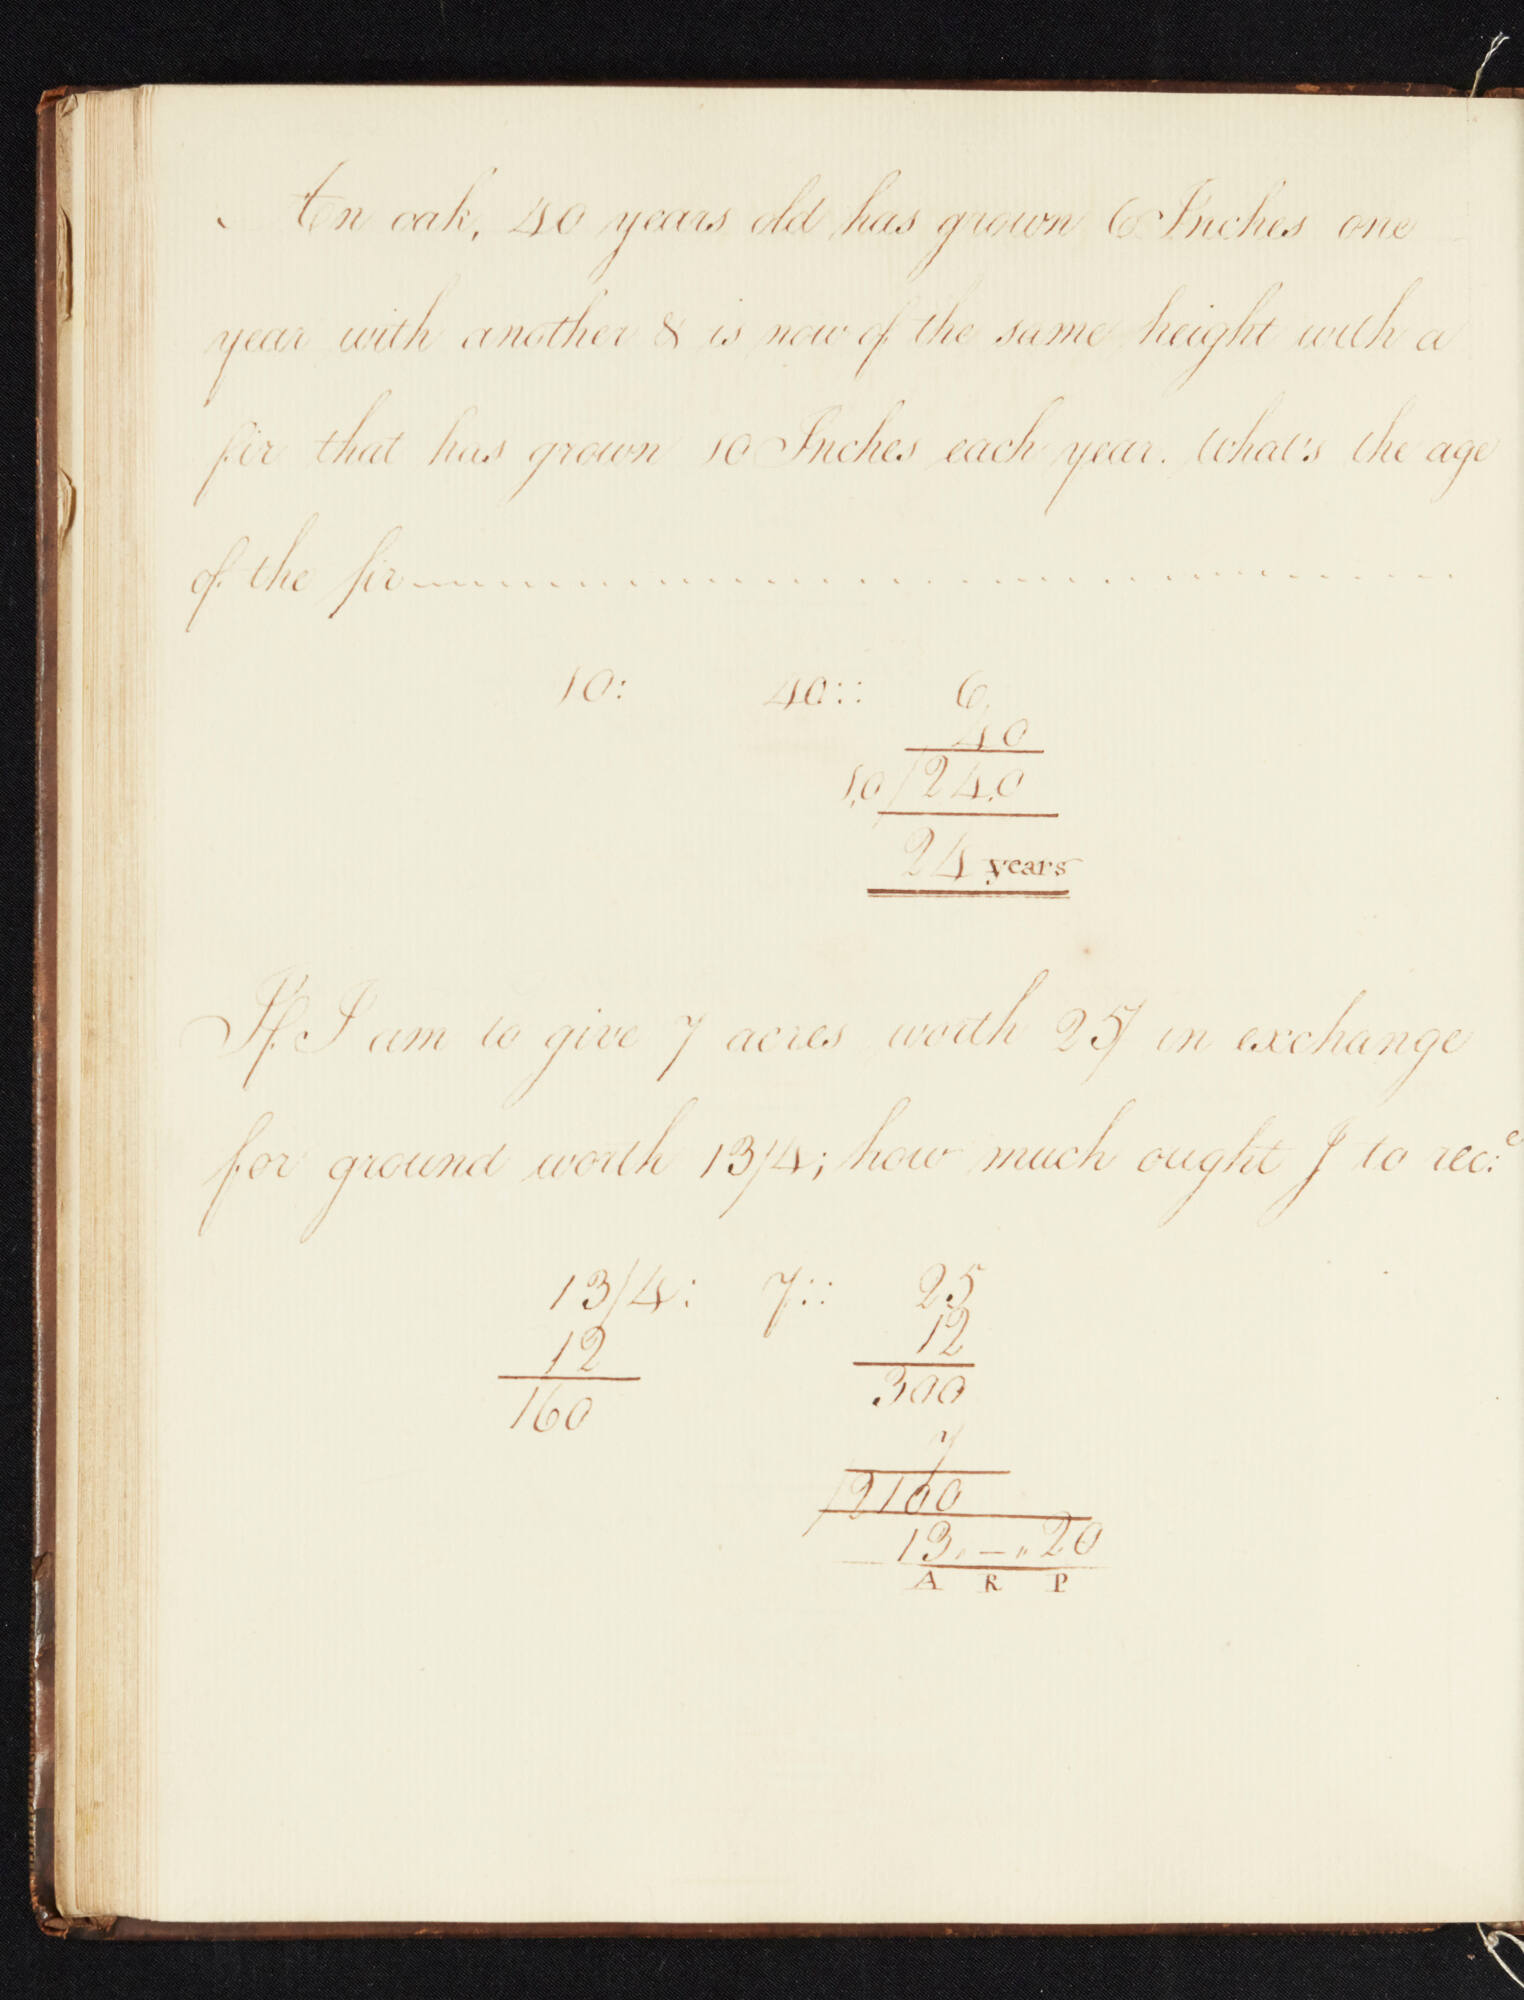 An oak, 40 years old has grown 6 Inches one
year with another & is now of the same height with a
fir that has grown 10 Inches each year. What's the age
of the fir
10: 40:: 6
40
10/240
24 years
If I am to give 7 acres worth 25/ in exchange
for ground worth 13/4; how much ought I to rec:e
13/4: 7:: 25
12 12
160 300
7
2100
13 " — " 20
A R P